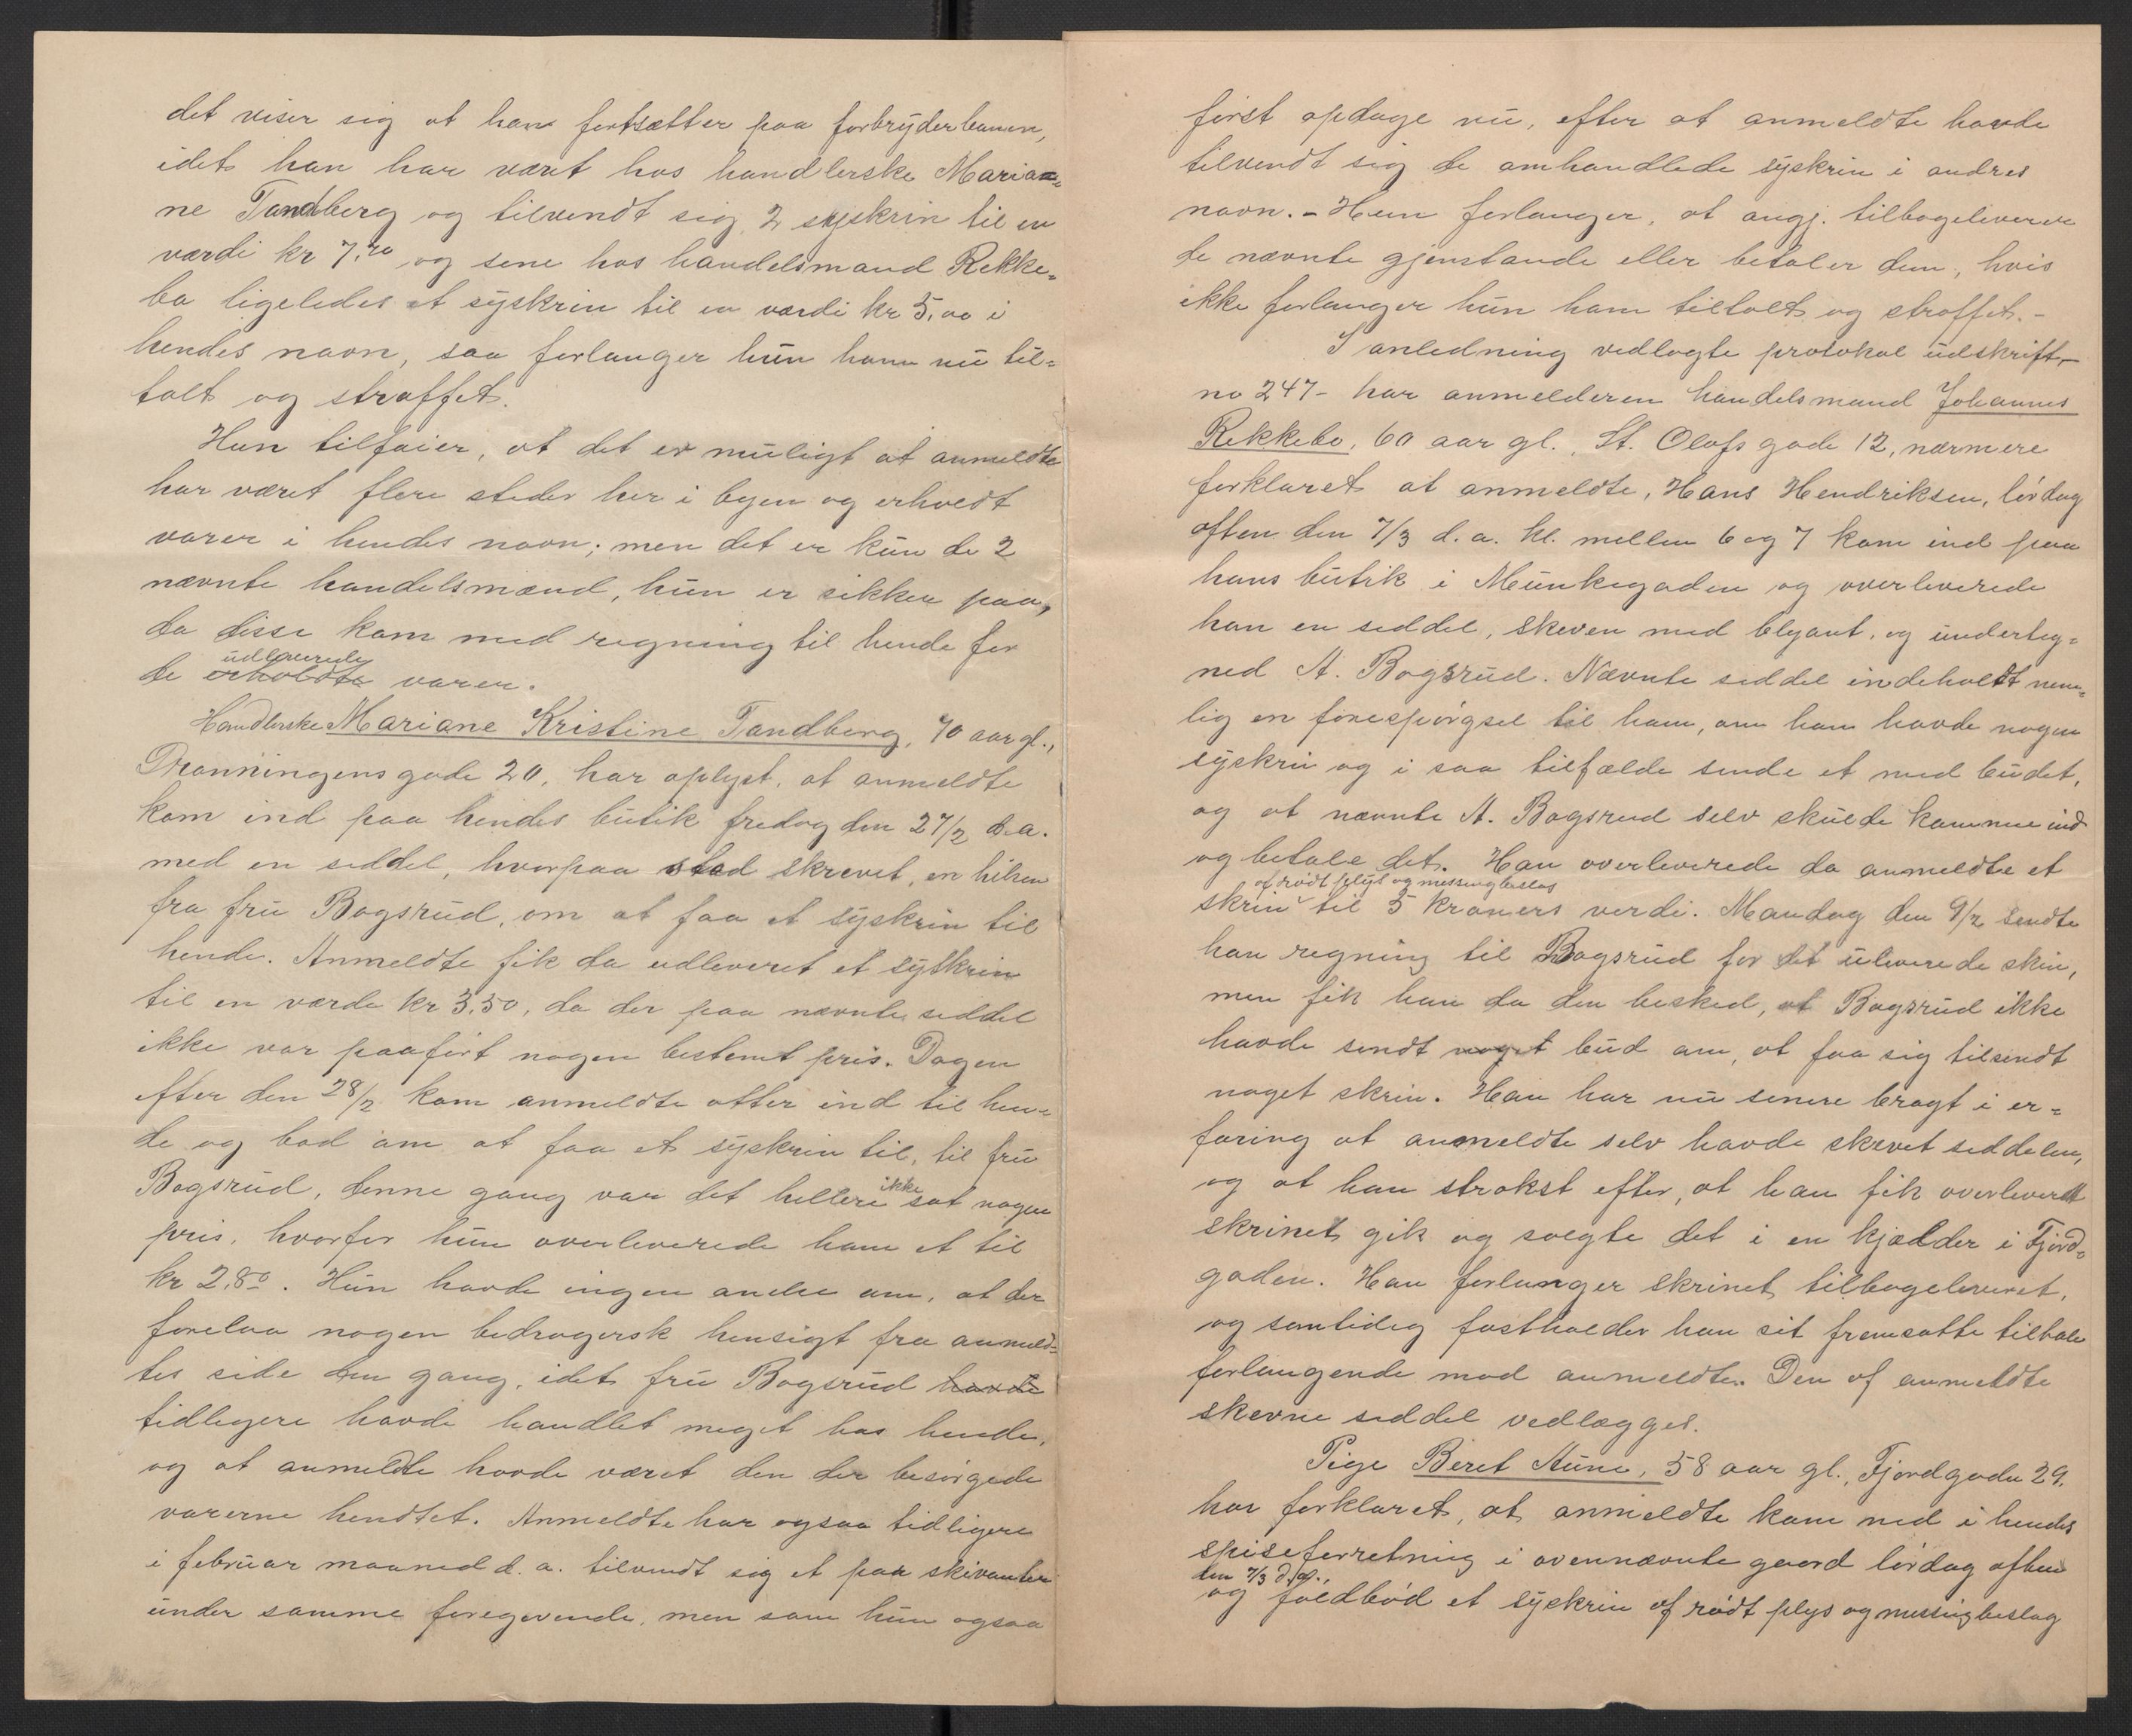 det viser sig at han fortsætter paa forbryderbanen,
idet han har været hos handlerske Maria=
ne Tandberg og tilvendt sig 2 syskrin til en
værdi kr 7.20 og sene hos handelsmand Rekke=
bo ligeledes et syskrin til en værdi kr 5,00 i
hendes navn, saa forlanger hun ham nu til=
talt og straffet.
Hun tilføier, at det er muligt at anmeldte
har været flere steder her i byen og erholdt
varer i hendes navn; men det er kun de 2
nævnte handelsmænd, hun er sikker paa,
da disse kom med regning til hende for
udleverede
de erholdte varer.
Handlerske Mariane Kristine Tandberg, 40 aar gl.,
Dronningens gade 20, har oplyst, at anmeldte
kom ind paa hendes butik fredag den 27/2 d.a.
med en seddel, hvorpaa stod skrevet, en hilsen
fra fru Bogsrud, om at faa et syskrin til
hende. Anmeldte fik da udleveret et syskrin
til en værde kr 3,50, da der paa nævnte seddel
ikke var paaført nogen bestemt pris. Dagen
efter den 28/2 kom anmeldte atter ind til hen=
de og bad om at faa et syskrin til, til fru
ikke
Bogsrud, denne gang var det hellere sat nogen
pris, hvorfor hun overleverede ham et til
kr 2,80. Hun havde ingen anelse om, at der
forelaa nogen bedragersk hensigt fra anmeld=
tes side den gang, idet fru Bogsrud havde
tidligere havde handlet meget hos hende,
og at anmeldte havde været den der besørgede
varerne hendtet. Anmeldte har ogsaa tidligere
i februar maaned d. a. tilvendt sig et paa skivanter
under samme foregivende, men som hun ogsaa
først opdage nu, efter at anmeldte havde
tilvendt sig de omhandlede syskrin i andres
navn. – Hun forlanger, at angj. tilbageleverer
de nævnte gjenstande eller betaler dem, hvis
ikke forlanger hun ham tiltalt og straffet. –
I anledning vedlagte protokol udskrift,
no 247 – har anmelderen handelsmand Johannes
Rekkebo, 60 aar gl., St. Olafs gade 12, nærmere
forklaret at anmeldte, Hans Hendriksen, lørdag
aften den 7/3 d. a. kl. mellem 6 og 7 kom ind paa
hans butik i Munkegaden og overleverede
han en seddel, skeven med blyant, og underteg=
ned A. Bogsrud. Nævnte seddel indeholdt nem=
lig en forespørgsel til ham, om han havde nogen
syskrin og i saa tilfælde sende et med budet,
og at nævnte A. Bogsrud selv skulde komme ind
og betale det. Han overleverede da anmeldte et
af rødt plys og messingbeslag
skrin til 5 kroners verdi. Mandag den 9/2 sendte
han regning til Bogsrud for det uleverede skin,
men fik han da den besked, at Bogsrud ikke
havde sendt noget bud om, at faa sig tilsendt
noget skrin. Han har nu senere bragt i er=
faring at anmeldte selv havde skrevet seddelen,
og at han strakst efter, at han fik overleveret
skrinet gik og solgte det i en kjælder i Fjord=
gaden. Han forlanger skrinet tilbageleveret,
og samtidig fastholder han sit fremsatte tiltale
forlangende mod anmeldte. Den af anmeldte
skevne seddel vedlægges.
Pige Beret Aune, 58 aar gl., Fjordgada 29,
har forklaret, at anmeldte kom ned i hendes
spiseforretning i ovennævnte gaard lørdag aften
den 7/3 d.a.,
og faldbød et syskrin af rødt plys og messingbeslag